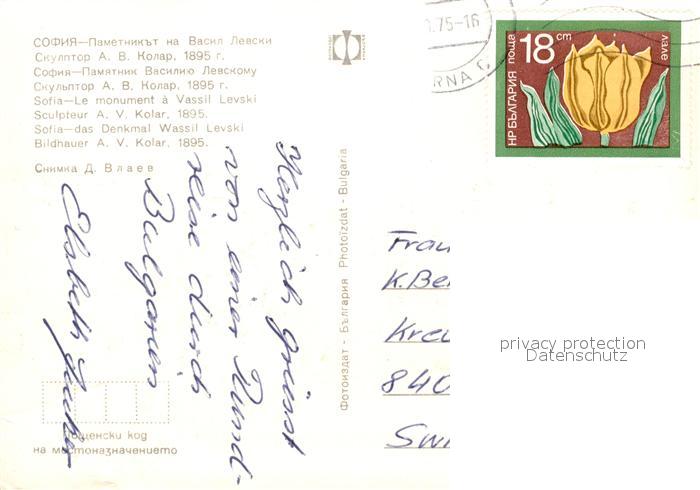 СОФИЯ—Паметникът на Васил Левски
Скулптор А. В. Колар, 1895 г.
София—Памятник Василию Левскому
Скульптор А. В. Колар, 1895 г.
Sofia—Le monument à Vassil Levski
Sculpteur A. V. Kolar, 1895.
Sofia—das Denkmal Wassil Levski
Bildhauer A. V. Kolar, 1895.
Снимка Д. Влаев
Herzlich grüsst
von einer Rund-
reise durch
Bulgarien
Elsbeth
Пощенски код
на местоназначението
Фотоиздат - България Photoïzdat - Bulgaria
.75-16
RNA
НРБЪЛГАРИЯ поща
18 cm
лале
Frau
K. Be
Kreu
840
Swi
privacy protection
Datenschutz